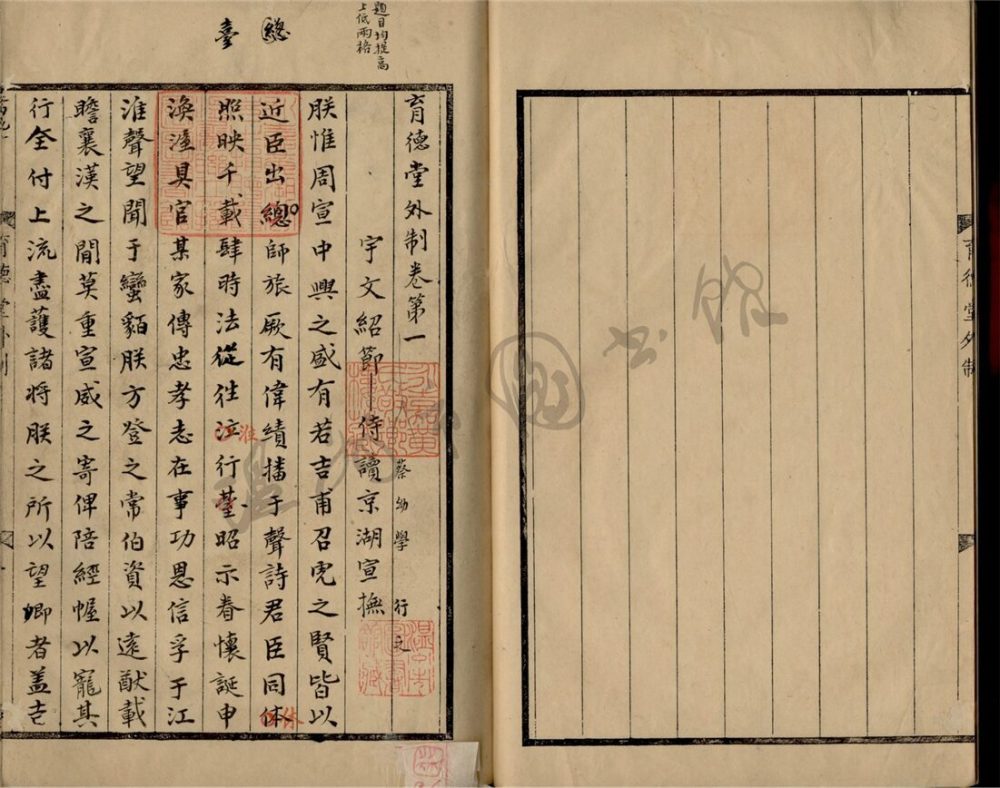 育德堂外制
題目均提高
上低兩格
總
臺
育德堂外制卷第一
蔡幼學 行之
宇文紹節侍讀京湖宣撫
朕惟周宣中興之盛有若吉甫召虎之賢皆以
近臣出總師旅厥有偉績播于聲詩君臣同体
休
照映千載肆時法從往涖行臺昭示眷懷誕申
淮
渙渥具官某家傳忠孝志在事功恩信孚于江
淮聲望聞于蠻貊朕方登之常伯資以遠猷載
瞻襄漢之間莫重宣威之寄俾陪經幄以寵其
行全付上流盡護諸將朕之所以望卿者盖吉
育德堂外制